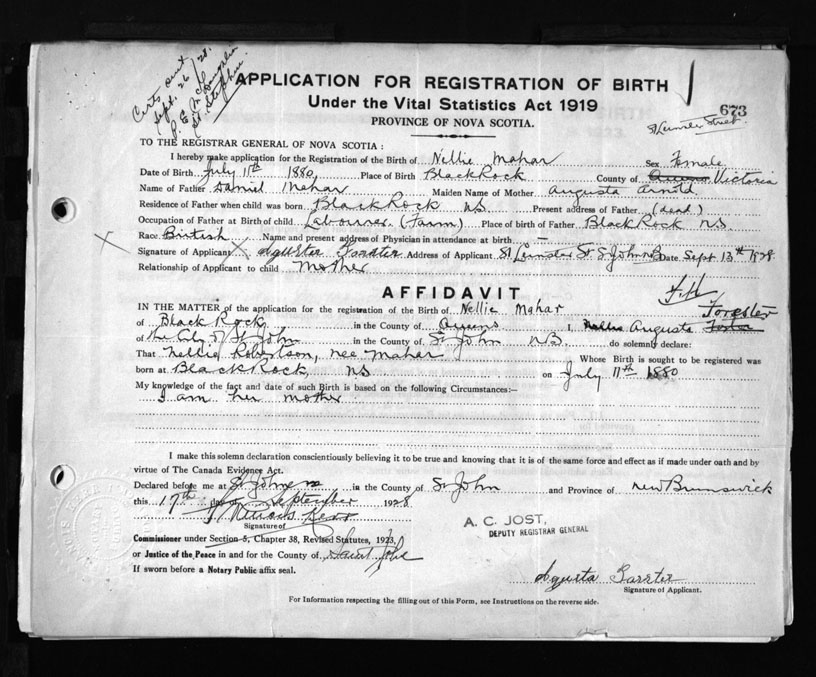 Certs sent
Sept. 26/28.
St. Stephen
APPLICATION FOR REGISTRATION OF BIRTH
Under the Vital Statistics Act 1919
673
PROVINCE OF NOVA SCOTIA.
51 Leinster Street.
TO THE REGISTRAR GENERAL OF NOVA SCOTIA :
I hereby make application for the Registration of the Birth of Nellie Mahar Sex Female
Date of Birth July 11th 1880, Place of Birth Black Rock County of Queens Victoria
Name of Father Daniel Mahar Maiden Name of Mother Augusta Arnold
Residence of Father when child was born Black Rock NS Present address of Father (dead)
Occupation of Father at Birth of child Labourer (Farm) Place of birth of Father Black Rock N.S.
Race British Name and present address of Physician in attendance at birth —
Signature of Applicant X Agusta Forster Address of Applicant 51 Leinster St. St John NB Date Sept 13th 1928
Relationship of Applicant to child Mother
AFFIDAVIT
IN THE MATTER of the application for the registration of the Birth of Nellie Mahar Forester
of Black Rock in the County of Queens I, Nellie Augusta Foster
of the City of St John in the County of St John N.B. do solemnly declare:
That Nellie Robertson, nee Mahar Whose Birth is sought to be registered was
born at Black Rock NS on July 11th 1880
My knowledge of the fact and date of such Birth is based on the following Circumstances:—
I am her mother
I make this solemn declaration conscientiously believing it to be true and knowing that it is of the same force and effect as if made under oath and by
virtue of The Canada Evidence Act.
Declared before me at St John in the County of St John and Province of New Brunswick
this 17th day September 1928
Signature of
A. C. JOST,
DEPUTY REGISTRAR GENERAL
Commissioner under Section 5, Chapter 38, Revised Statutes, 1923,
or Justice of the Peace in and for the County of Saint John
If sworn before a Notary Public affix seal.
Agusta Forster
Signature of Applicant.
For Information respecting the filling out of this Form, see Instructions on the reverse side.